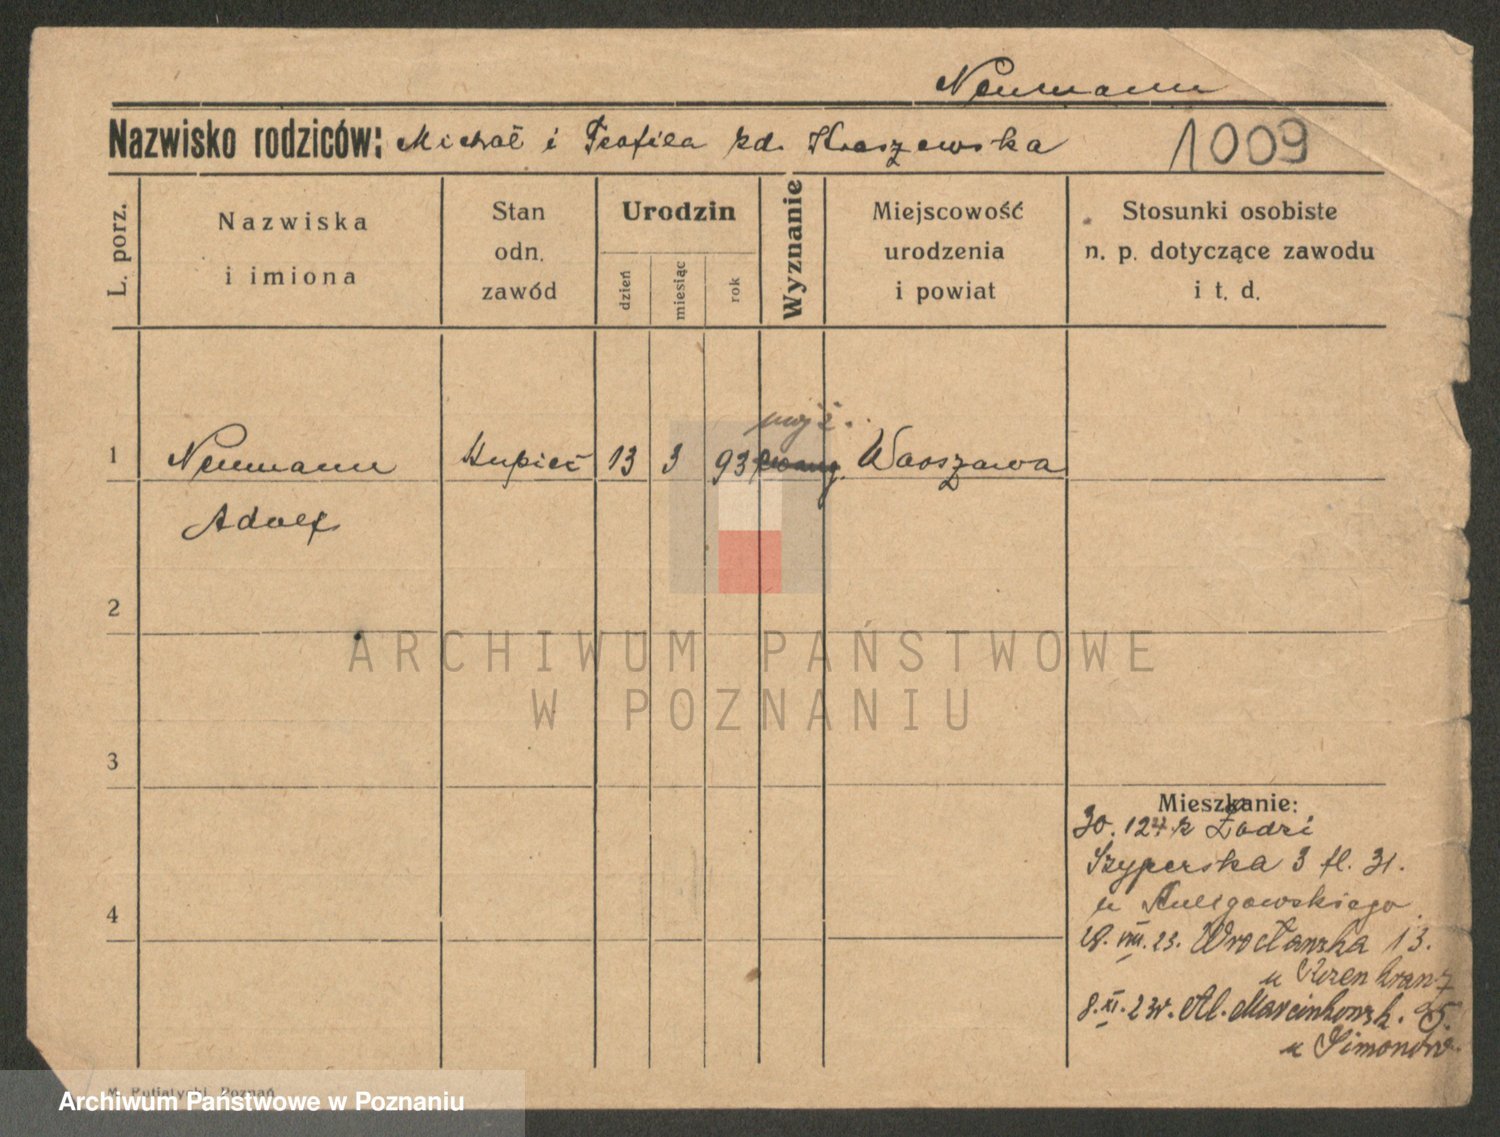 Neumann
Nazwisko rodziców: Michał i Teofila zd. Kraszewska 1009
L. porz.
Nazwiska
i imiona
Stan
odn.
zawód
Urodzin
dzień
miesiąc
rok
Wyznanie
Miejscowość
urodzenia
i powiat
Stosunki osobiste
n. p. dotyczące zawodu
i t. d.
mojż.
1 Neumann Kupiec 13 3 93 ewang. Warszawa
Adolf
2
ARCHIWUM PAŃSTWOWE
W POZNANIU
3
Mieszkanie:
30. 1 z Łodzi
Szyperska 3 fl. 31.
u
4
28. VIII. 23. Wrocławska 13.
u
8. XI. 23 r. Al. Marcinkowsk.
u Simonów
M. Putiatycki, Poznań
Archiwum Państwowe w Poznaniu